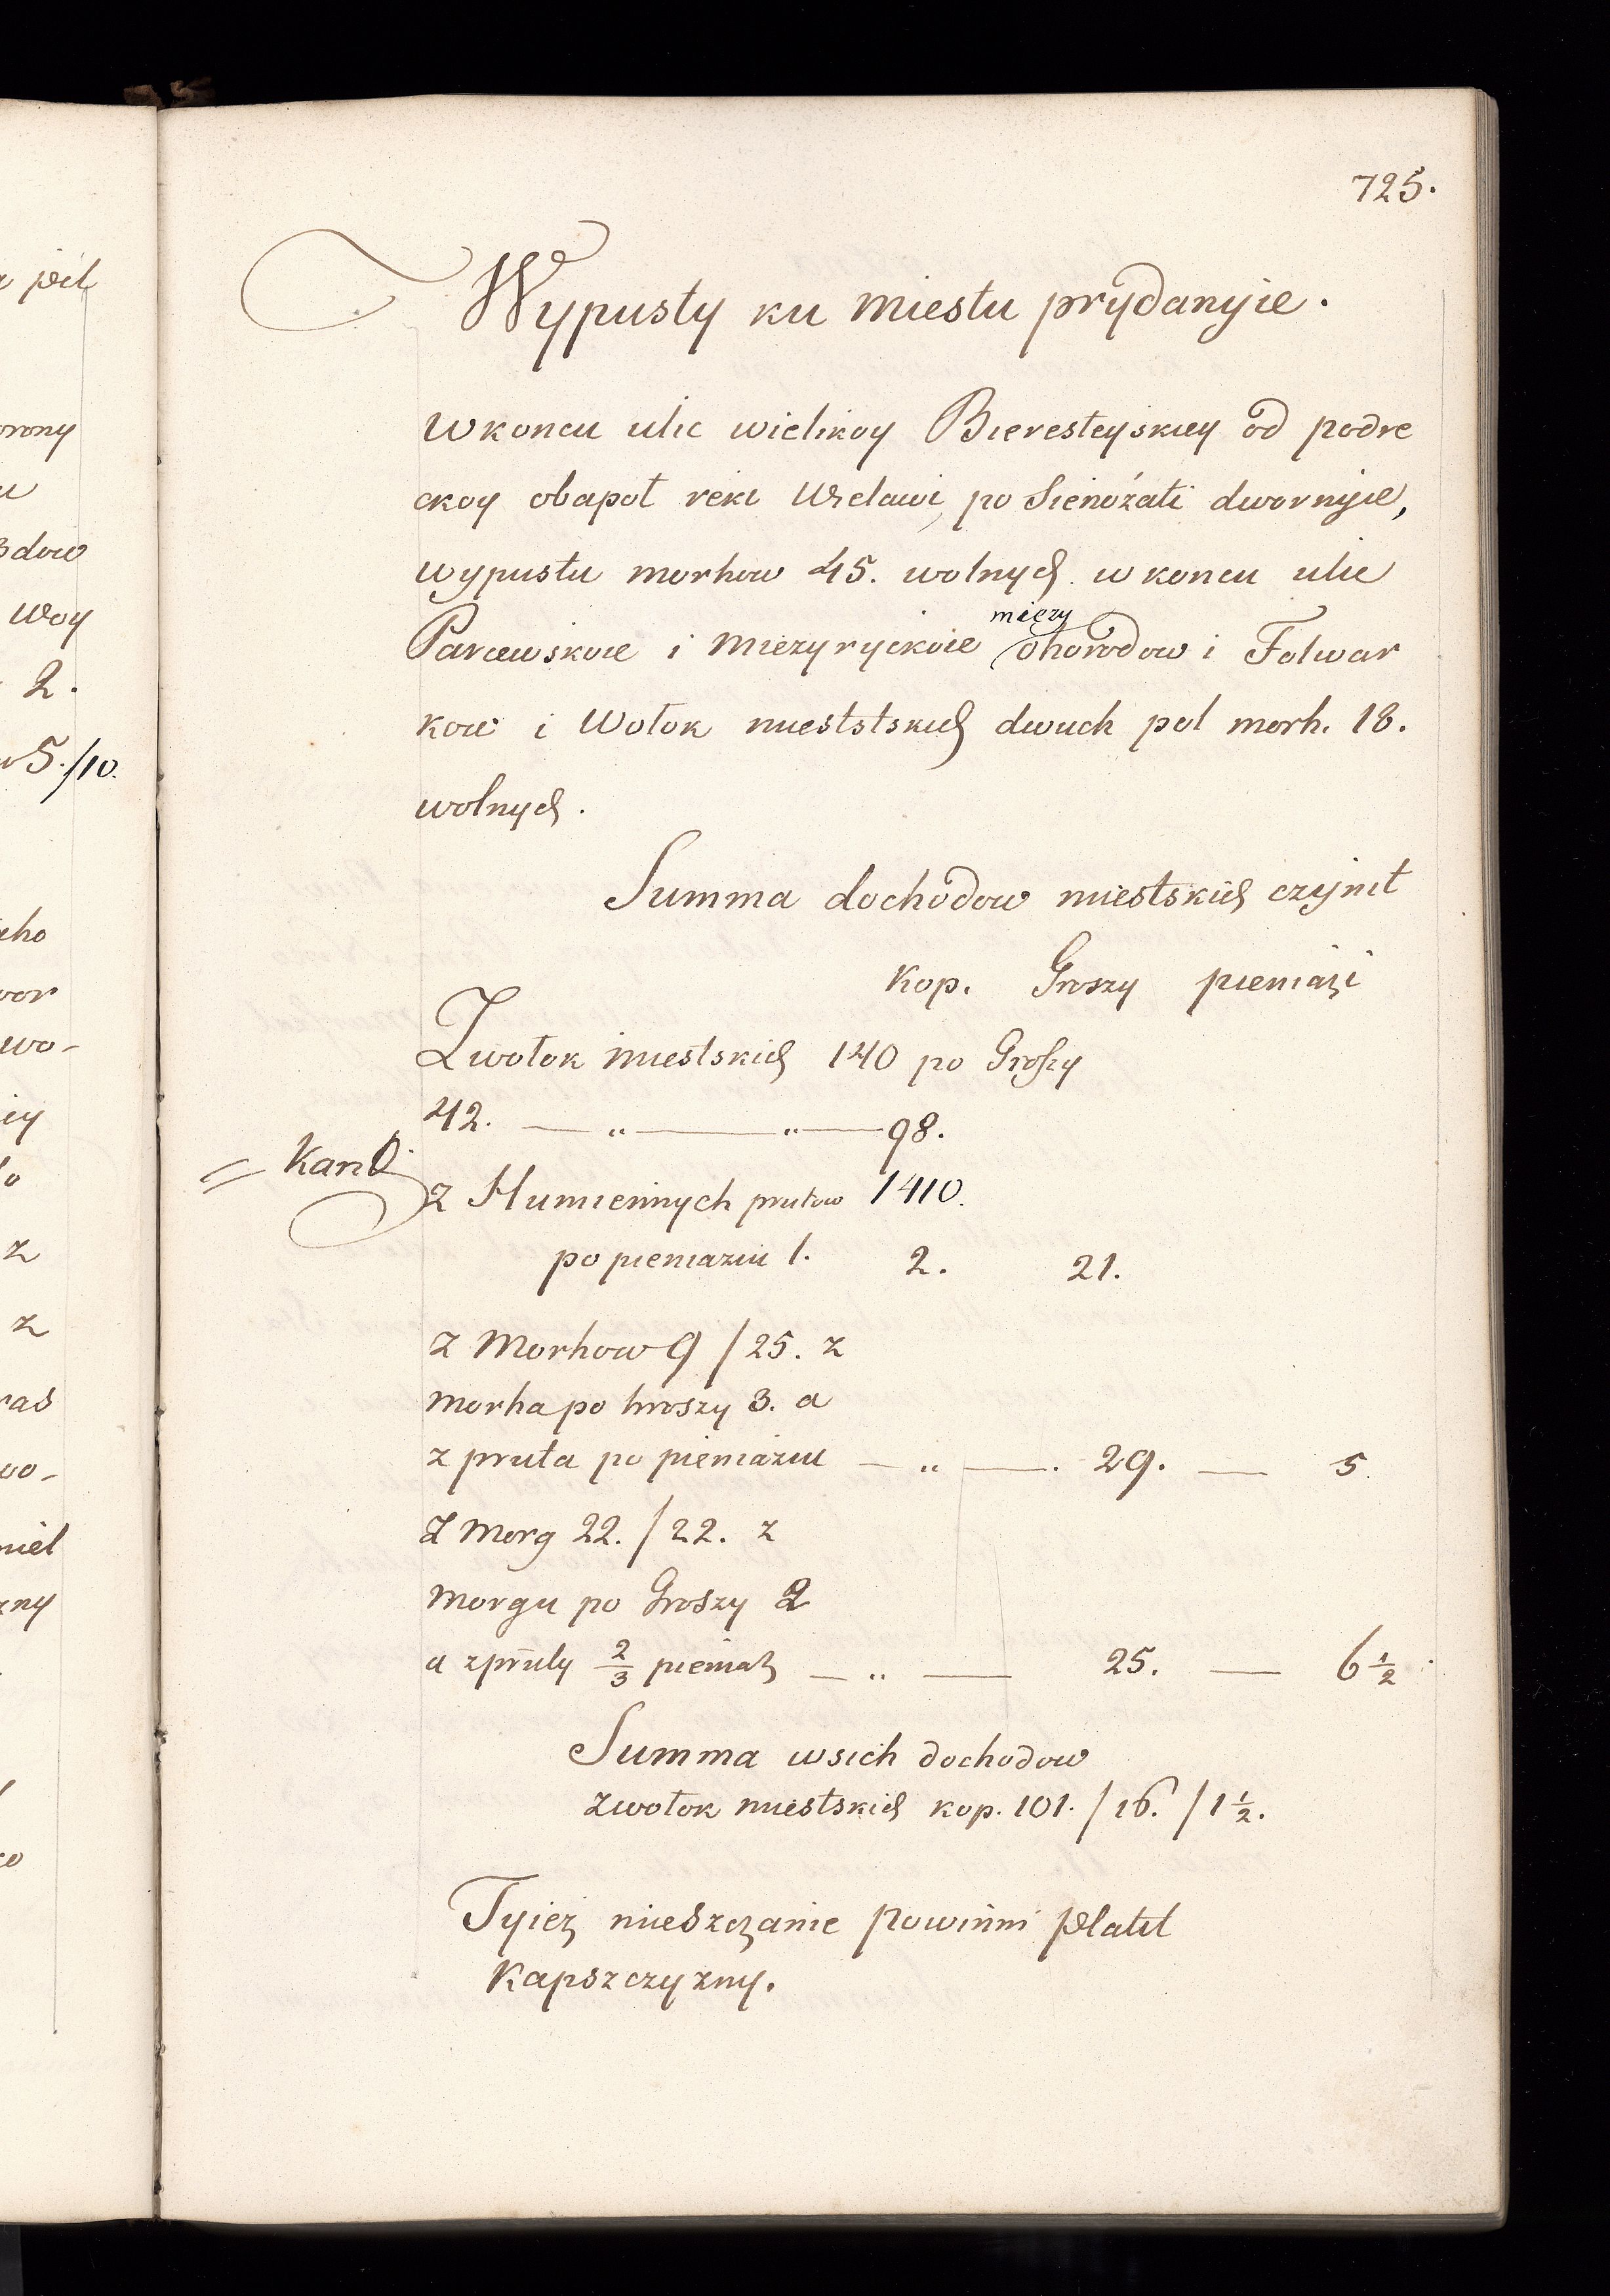 725.
Wypusty ku miestu prydanyie.
W koncu ulic wielikoy Bieresteyskiey od podre
ckoy obapoł reki Wielawi, po Sienożati dwornyie,
wypustu morhow 45. wolnych. w koncu ulic
Parcewskoie i miezyryckoie miezy ohorodow i Folwar
kow i Wołok mieststskich dwuch pol morh. 18.
wolnych.
Summa dochodow miestskich czynit
Kop. Groszy pieniązi
Z wołok miestskich 140 po Groszy
42. — „ — „ — 98.
z Humiennych prutow 1410.
po pieniaziu 1. 2. 21.
z Morhow 9 / 25. z
morha po hroszy 3. a
z pruta po pieniaziu — „ —. 29. — 5.
Z Morg 22. / 22. z
morgu po Groszy 2
a z pruty 2/3 pieniaz — „ — 25. — 6 1/2
Summa wsich dochodow
z wołok miestskich kop. 101. / 16. / 1 1/2.
Tyież mieszczanie powinni płatit
Kapszczyzny.
pół
orony
u
dow
Woy
2.
5./10.
eho
wor
wo-
iey
z
z
wo-
niet
zny